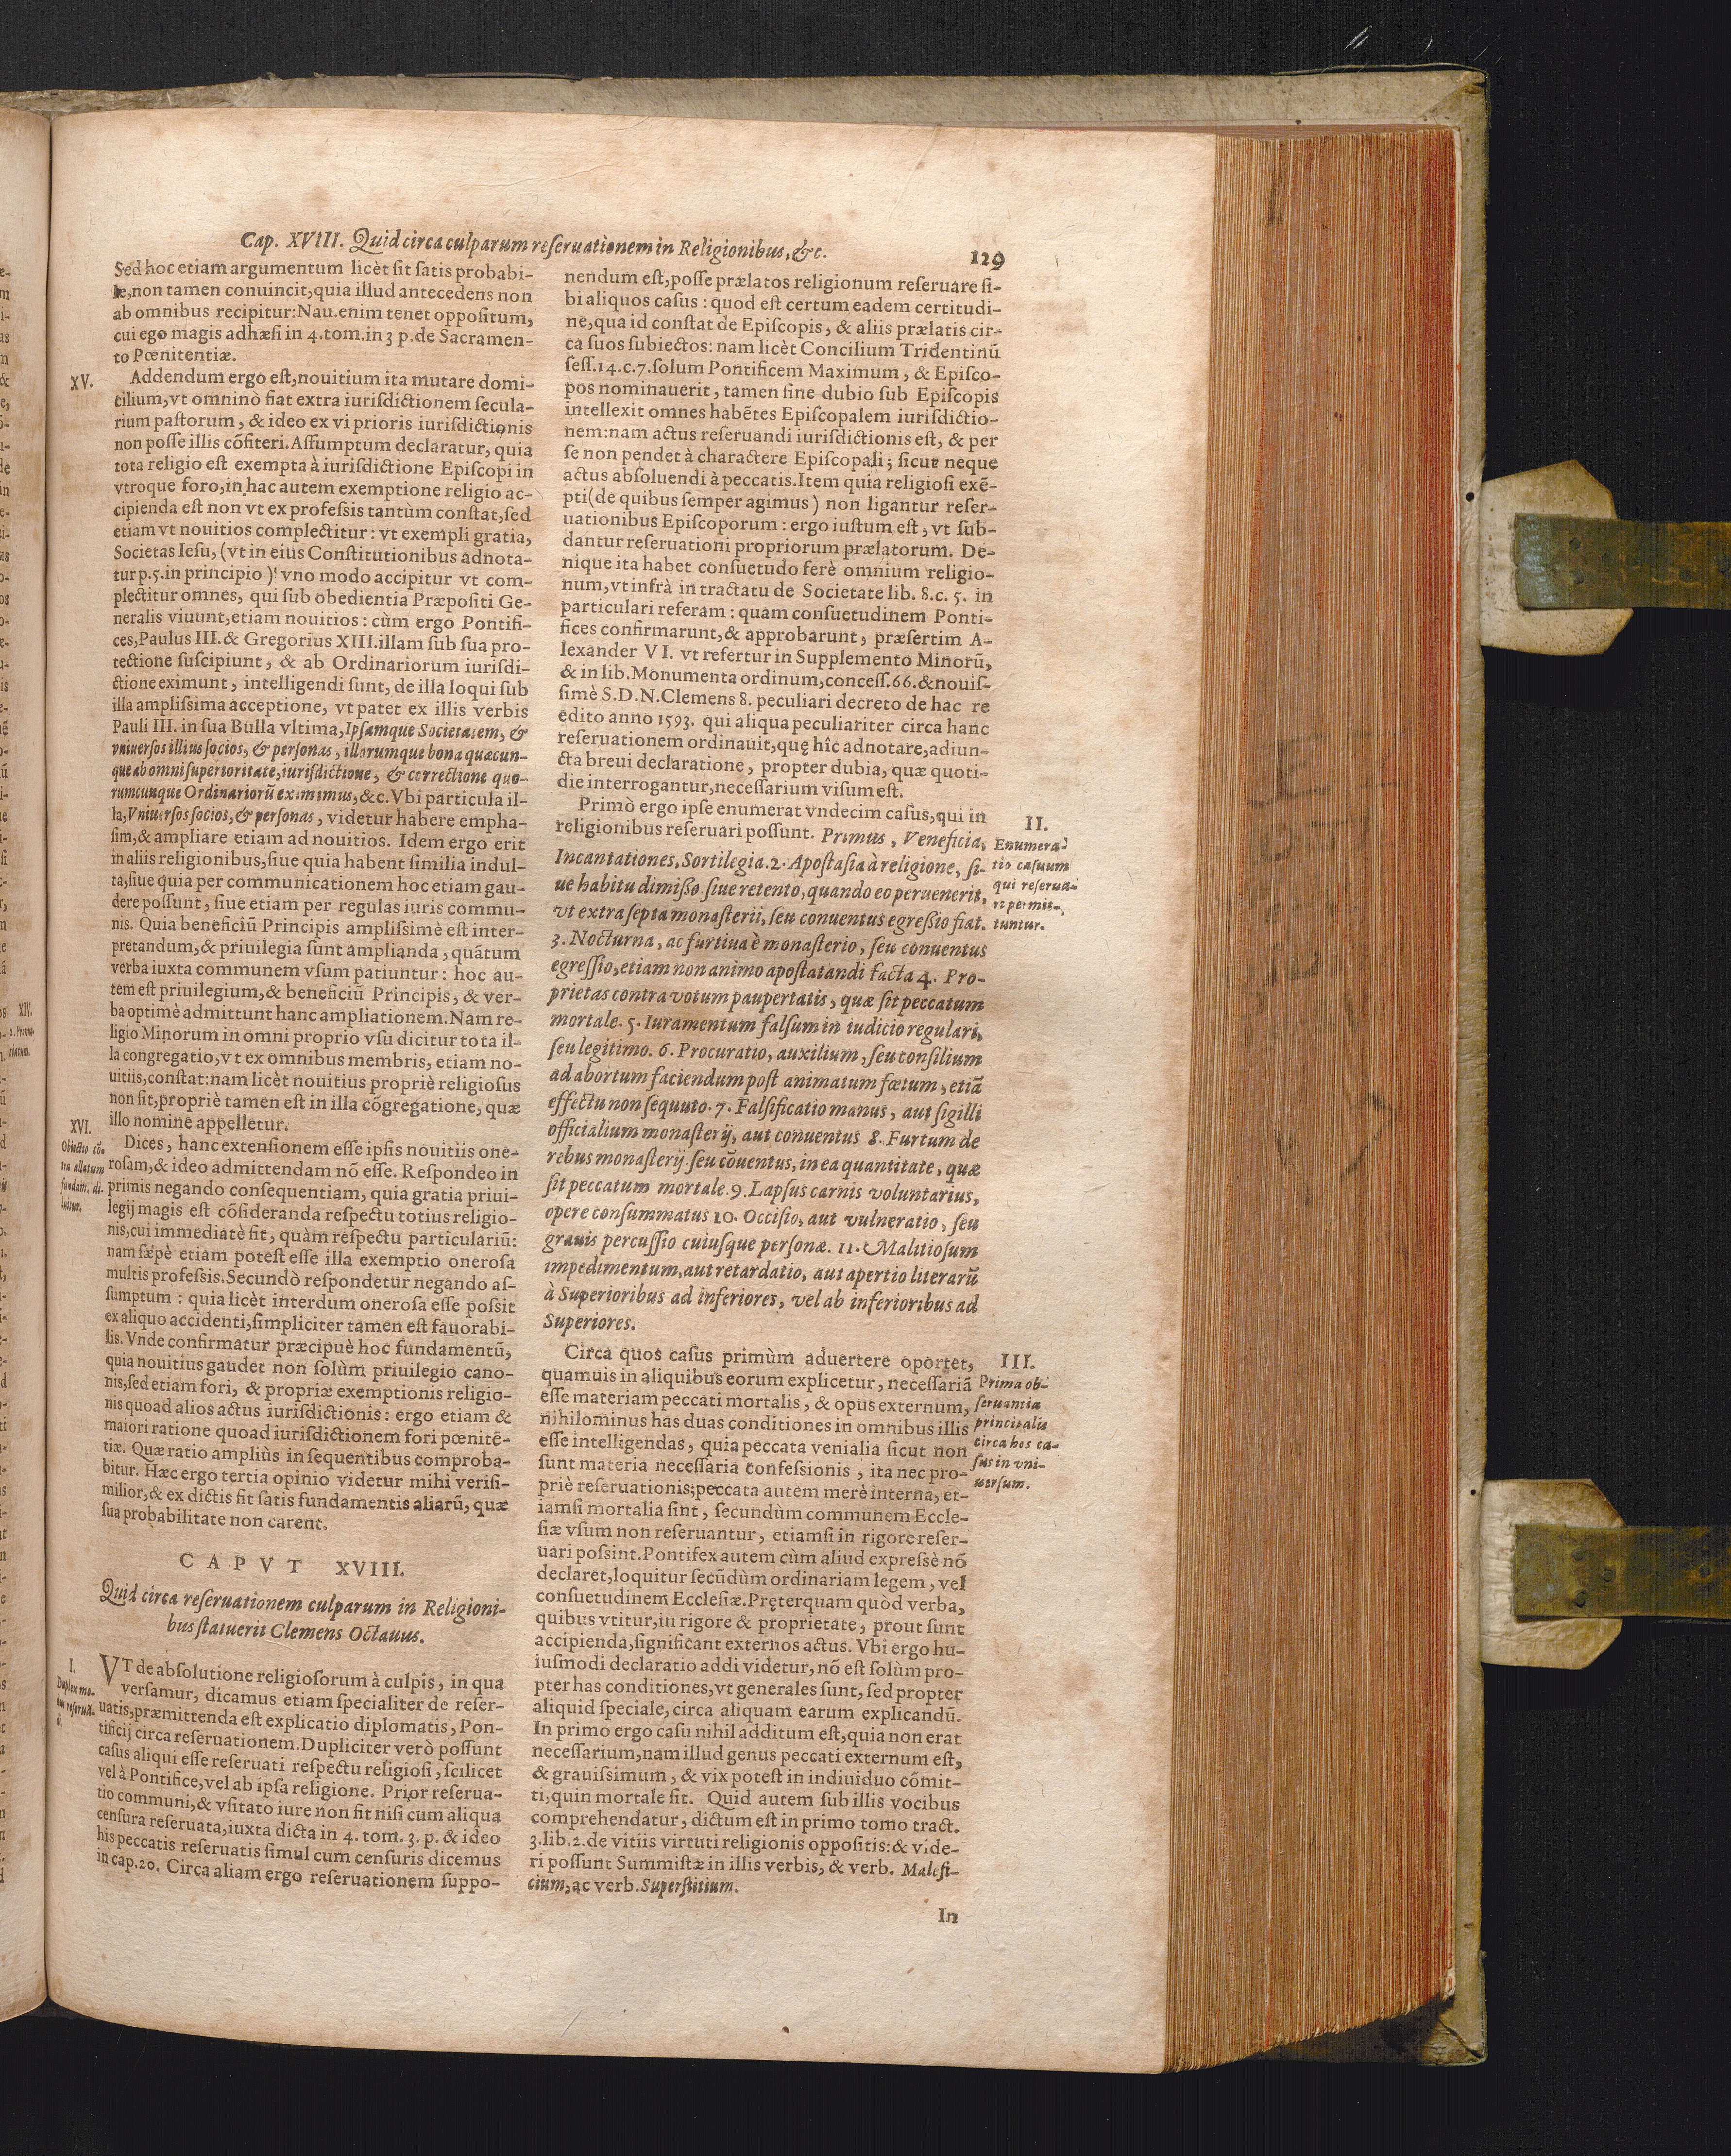 Cap. XVIII. Quid circa culparum reſeruationem in Religionibus, &c.
129
Sed hoc etiam argumentum licèt ſit ſatis probabi-
le, non tamen conuincit, quia illud antecedens non
ab omnibus recipitur: Nau. enim tenet oppoſitum,
cui ego magis adhæſi in 4. tom. in 3 p. de Sacramen-
to Pœnitentiæ.
XV.
Addendum ergo eſt, nouitium ita mutare domi-
cilium, vt omninò fiat extra iuriſdictionem ſecula-
rium paſtorum, & ideo ex vi prioris iuriſdictionis
non poſſe illis cõfiteri. Aſſumptum declaratur, quia
tota religio eſt exempta à iuriſdictione Epiſcopi in
vtroque foro, in hac autem exemptione religio ac-
cipienda eſt non vt ex profeſsis tantùm conſtat, ſed
etiam vt nouitios complectitur: vt exempli gratia,
Societas Ieſu, (vt in eius Conſtitutionibus adnota-
tur p. 5. in principio) vno modo accipitur vt com-
plectitur omnes, qui ſub obedientia Præpoſiti Ge-
neralis viuunt, etiam nouitios: cùm ergo Pontifi-
ces, Paulus III. & Gregorius XIII. illam ſub ſua pro-
tectione ſuſcipiunt, & ab Ordinariorum iuriſdi-
ctione eximunt, intelligendi ſunt, de illa loqui ſub
illa ampliſsima acceptione, vt patet ex illis verbis
Pauli III. in ſua Bulla vltima, Ipſamque Societatem, &
vniuerſos illius ſocios, & perſonas, illorumque bona quæcun-
que ab omni ſuperioritate, iuriſdictione, & correctione quo-
rumcunque Ordinariorũ eximimus, &c. Vbi particula il-
la, Vniuerſos ſocios, & perſonas, videtur habere empha-
ſim, & ampliare etiam ad nouitios. Idem ergo erit
in aliis religionibus, ſiue quia habent ſimilia indul-
ta, ſiue quia per communicationem hoc etiam gau-
dere poſſunt, ſiue etiam per regulas iuris commu-
nis. Quia beneficiũ Principis ampliſsimè eſt inter-
pretandum, & priuilegia ſunt amplianda, quãtum
verba iuxta communem vſum patiuntur: hoc au-
tem eſt priuilegium, & beneficiũ Principis, & ver-
ba optimè admittunt hanc ampliationem. Nam re-
ligio Minorum in omni proprio vſu dicitur tota il-
la congregatio, vt ex omnibus membris, etiam no-
uitiis, conſtat: nam licèt nouitius propriè religioſus
non ſit, propriè tamen eſt in illa cõgregatione, quæ
illo nomine appelletur.
XVI.
Obiectio cõ-
tra allatum
fundam. di-
luitur.
Dices, hanc extenſionem eſſe ipſis nouitiis one-
roſam, & ideo admittendam nõ eſſe. Reſpondeo in
primis negando conſequentiam, quia gratia priui-
legij magis eſt cõſideranda reſpectu totius religio-
nis, cui immediatè fit, quàm reſpectu particulariũ:
nam ſæpè etiam poteſt eſſe illa exemptio oneroſa
multis profeſsis. Secundò reſpondetur negando aſ-
ſumptum: quia licèt interdum oneroſa eſſe poſsit
ex aliquo accidenti, ſimpliciter tamen eſt fauorabi-
lis. Vnde confirmatur præcipuè hoc fundamentũ,
quia nouitius gaudet non ſolùm priuilegio cano-
nis, ſed etiam fori, & propriæ exemptionis religio-
nis quoad alios actus iuriſdictionis: ergo etiam &
maiori ratione quoad iuriſdictionem fori pœnitẽ-
tiæ. Quæ ratio ampliùs in ſequentibus comproba-
bitur. Hæc ergo tertia opinio videtur mihi veriſi-
milior, & ex dictis fit ſatis fundamentis aliarũ, quæ
ſua probabilitate non carent.
CAPVT XVIII.
Quid circa reſeruationem culparum in Religioni-
bus ſtatuerit Clemens Octauus.
I.
Duplex mo-
dus reſeruã-
di.
VT de abſolutione religioſorum à culpis, in qua
verſamur, dicamus etiam ſpecialiter de reſer-
uatis, præmittenda eſt explicatio diplomatis, Pon-
tificij circa reſeruationem. Dupliciter verò poſſunt
caſus aliqui eſſe reſeruati reſpectu religioſi, ſcilicet
vel à Pontifice, vel ab ipſa religione. Prior reſerua-
tio communi, & vſitato iure non fit niſi cum aliqua
cenſura reſeruata, iuxta dicta in 4. tom. 3. p. & ideo
his peccatis reſeruatis ſimul cum cenſuris dicemus
in cap. 20. Circa aliam ergo reſeruationem ſuppo-
nendum eſt, poſſe prælatos religionum reſeruare ſi-
bi aliquos caſus: quod eſt certum eadem certitudi-
ne, qua id conſtat de Epiſcopis, & aliis prælatis cir-
ca ſuos ſubiectos: nam licèt Concilium Tridentinũ
ſeſſ. 14. c. 7. ſolum Pontificem Maximum, & Epiſco-
pos nominauerit, tamen ſine dubio ſub Epiſcopis
intellexit omnes habẽtes Epiſcopalem iuriſdictio-
nem: nam actus reſeruandi iuriſdictionis eſt, & per
ſe non pendet à charactere Epiſcopali; ſicut neque
actus abſoluendi à peccatis. Item quia religioſi exẽ-
pti (de quibus ſemper agimus) non ligantur reſer-
uationibus Epiſcoporum: ergo iuſtum eſt, vt ſub-
dantur reſeruationi propriorum prælatorum. De-
nique ita habet conſuetudo ferè omnium religio-
num, vt infrà in tractatu de Societate lib. 8. c. 5. in
particulari referam: quam conſuetudinem Ponti-
fices confirmarunt, & approbarunt, præſertim A-
lexander VI. vt refertur in Supplemento Minorũ,
& in lib. Monumenta ordinum, conceſſ. 66. & nouiſ-
ſimè S. D. N. Clemens 8. peculiari decreto de hac re
edito anno 1593. qui aliqua peculiariter circa hanc
reſeruationem ordinauit, quę hîc adnotare, adiun-
cta breui declaratione, propter dubia, quæ quoti-
die interrogantur, neceſſarium viſum eſt.
II.
Enumera-
tio caſuum
qui reſerua-
ri permit-
tuntur.
Primò ergo ipſe enumerat vndecim caſus, qui in
religionibus reſeruari poſſunt. Primus, Veneficia,
Incantationes, Sortilegia. 2. Apoſtaſia à religione, ſi-
ue habitu dimißo ſiue retento, quando eo peruenerit,
vt extra ſepta monaſterii, ſeu conuentus egreßio fiat.
3. Nocturna, ac furtiua è monaſterio, ſeu conuentus
egreſſio, etiam non animo apoſtatandi facta 4. Pro-
prietas contra votum paupertatis, quæ ſit peccatum
mortale. 5. Iuramentum falſum in iudicio regulari,
ſeu legitimo. 6. Procuratio, auxilium, ſeu conſilium
ad abortum faciendum poſt animatum fœtum, etiã
effectu non ſequuto. 7. Falſificatio manus, aut ſigilli
officialium monaſterij, aut conuentus 8. Furtum de
rebus monaſterij ſeu cõuentus, in ea quantitate, quæ
ſit peccatum mortale. 9. Lapſus carnis voluntarius,
opere conſummatus 10. Occiſio, aut vulneratio, ſeu
grauis percuſſio cuiuſque perſonæ. 11. Malitioſum
impedimentum, aut retardatio, aut apertio literarũ
à Superioribus ad inferiores, vel ab inferioribus ad
Superiores.
III.
Prima ob-
ſeruantia
principalis
circa hos ca-
ſus in vni-
uerſum.
Circa quos caſus primùm aduertere oportet,
quamuis in aliquibus eorum explicetur, neceſſariã
eſſe materiam peccati mortalis, & opus externum,
nihilominus has duas conditiones in omnibus illis
eſſe intelligendas, quia peccata venialia ſicut non
ſunt materia neceſſaria confeſsionis, ita nec pro-
priè reſeruationis; peccata autem merè interna, et-
iamſi mortalia ſint, ſecundùm communem Eccle-
ſiæ vſum non reſeruantur, etiamſi in rigore reſer-
uari poſsint. Pontifex autem cùm aliud expreſsè nõ
declaret, loquitur ſecũdùm ordinariam legem, vel
conſuetudinem Eccleſiæ. Pręterquam quòd verba,
quibus vtitur, in rigore & proprietate, prout ſunt
accipienda, ſignificant externos actus. Vbi ergo hu-
iuſmodi declaratio addi videtur, nõ eſt ſolùm pro-
pter has conditiones, vt generales ſunt, ſed propter
aliquid ſpeciale, circa aliquam earum explicandũ.
In primo ergo caſu nihil additum eſt, quia non erat
neceſſarium, nam illud genus peccati externum eſt,
& grauiſsimum, & vix poteſt in indiuiduo cõmit-
ti, quin mortale ſit. Quid autem ſub illis vocibus
comprehendatur, dictum eſt in primo tomo tract.
3. lib. 2. de vitiis virtuti religionis oppoſitis: & vide-
ri poſſunt Summiſtæ in illis verbis, & verb. Malefi-
cium, ac verb. Superſtitium.
In